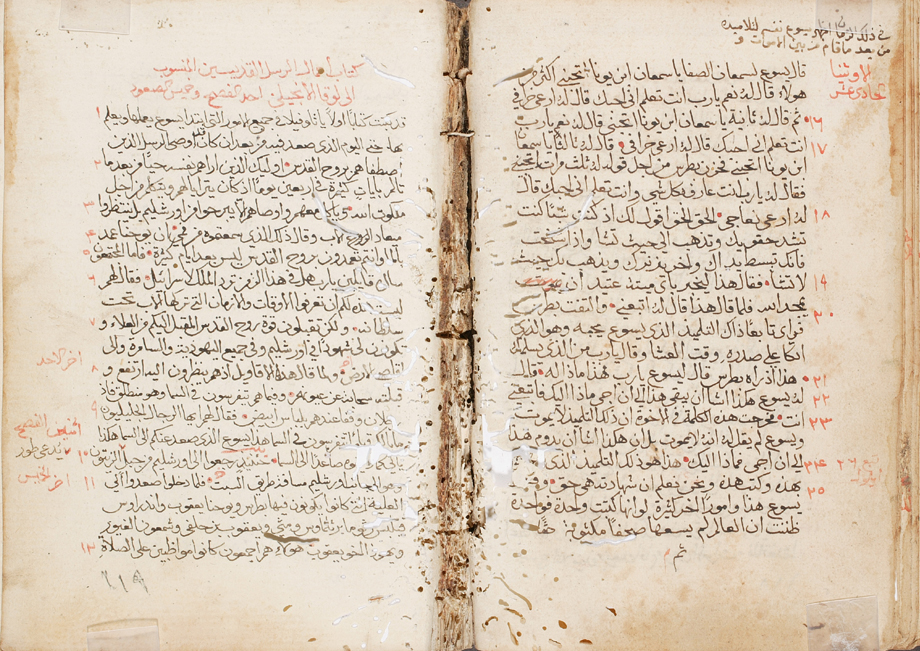 في ذلك الزمان اظهر يسوع نفسه لتلاميذه
من بعد ما قام من بين الاموات و
قال يسوع لسمعان الصفا يا سمعان ابن يونا اتحبني اكثر من
هولاء قال له نعم يارب انت تعلم اني احبك قال له ارعى خرافي
١٦ ثم قال له ثانية يا سمعان ابن يونا اتحبني قال له نعم يارب
١٧ انت تعلم اني احبك قال له ارعى خرافي قال له ثالثا يا سمعان
ابن يونا اتحبني فحزن بطرس من اجل قوله له ثلث مرات اتحبني
فقال له يارب انت عارف بكل شي وانت تعلم اني احبك قال
١٨ له ارعى نعاجي الحق الحق اقول لك اذ كنت شبًا كنت
تشد حقويك وتذهب الى حيث تشا واذا شخت
فانك تبسط يداك واخر يزنرك ويذهب بك حيث
١٩ لا تشا فقال هذا ليخبر باي ميتة عتيد ان
٢٠ يمجد الله فلما قال هذا قال له اتبعني والتفت بطرس
فراى تابعا ذاك التلميذ الذي يسوع يحبه وهو الذي
اتكا على صدره وقت العشا وقال يارب من الذي يسلمك
٢١ هذا اذ راه بطرس قال ليسوع يارب هذا ماذا له قال
٢٢ له يسوع هكذا اشا ان يبقى هذا الى ان اجي ماذا اليك فاتبعني
٢٣ انت فخرجت هذه الكلمة في الاخوة ان ذلك التلميذ لا يموت
ويسوع لم يقل له انه لا يموت بل ان هكذا اشا ان يدوم هذا
٢٤ الى ان اجي فماذا اليك هذا هو ذلك التلميذ الذي شهد
بهذه وكتب هذه ونحن نعلم ان شهادته هي حق وقد
٢٥ يسوع هذا وامورًا اخر كثيرة لو انها كتبت واحدة فواحدة
ظننت ان العالم لم يسعها صحفًا مكتوبة حقًا
تم
كتاب اعمال الرسل القديسين المنسوب
الى لوقا الانجيلي احد الفصح وخميس الصعود
١ قد كتبت كتابًا اولًا يا ثاوفيلا في جميع الامور التي ابتدا يسوع يعملها ويعلم
بها حتى اليوم الذي صعد فيه من بعد ان كان اوصى الرسل الذين
٣ اصطفاهم بروح القدس اوليك الذين اراهم نفسه حيًا من بعد ما
تالم بايات كثيرة في اربعين يومًا اذ كان يتراياهم ويتكلم من اجل
ملكوت الله وياكل معهم واوصاهم الا يبرحوا من اورشليم بل ينتظروا
ميعاد الاب وقال ذلك الذي سمعتموه مني ان يوحنا عمد
٥ بالما وانتم تعمدون بروح القدس ليس بعد ايام كثيرة فاما المجتمعون
٦ سالوه قايلين يارب هل في هذا الزمن ترد الملك لاسرائيل فقال لهم
ليس هذه لكم ان تعرفوا الاوقات والازمان التي تركها الاب تحت
٧ سلطانه ولكن تقبلون قوة روح القدس المقبل اليكم من العلاء و
تكونون لي شهودًا في اورشليم وفي جميع اليهودية والسامرة والى
٨ اقاصي الارض ولما قال هذه الاقاويل اذ هم ينظرون اليه ارتفع و
قبلته سحابة عن عيونهم وفيما هم يتفرسون في السما وهو منطلق فاذا
٩ رجلان وقفا عندهم بلباس ابيض فقالا لهم ايها الرجال الجليليون
ما بالكم قيامًا تتفرسون في السما هذا يسوع الذي صعد عنكم الى السما هكذا
١٠ ياتي كما رايتموه صاعدًا الى السما حينيذ رجعوا الى اورشليم من جبل الزيتون
١١ وهو الى جانب اورشليم مسافة طريق السبت فلما دخلوا صعدوا الى
العلية التي كانوا يكونون فيها بطرس ويوحنا يعقوب واندراوس
فيلبس توما برثلماوس ومتى ويعقوب بن حلفى وشمعون الغيور
١٣ ويهوذا اخو يعقوب هولاء هم اجمعون كانوا مواظبين على الصلاة